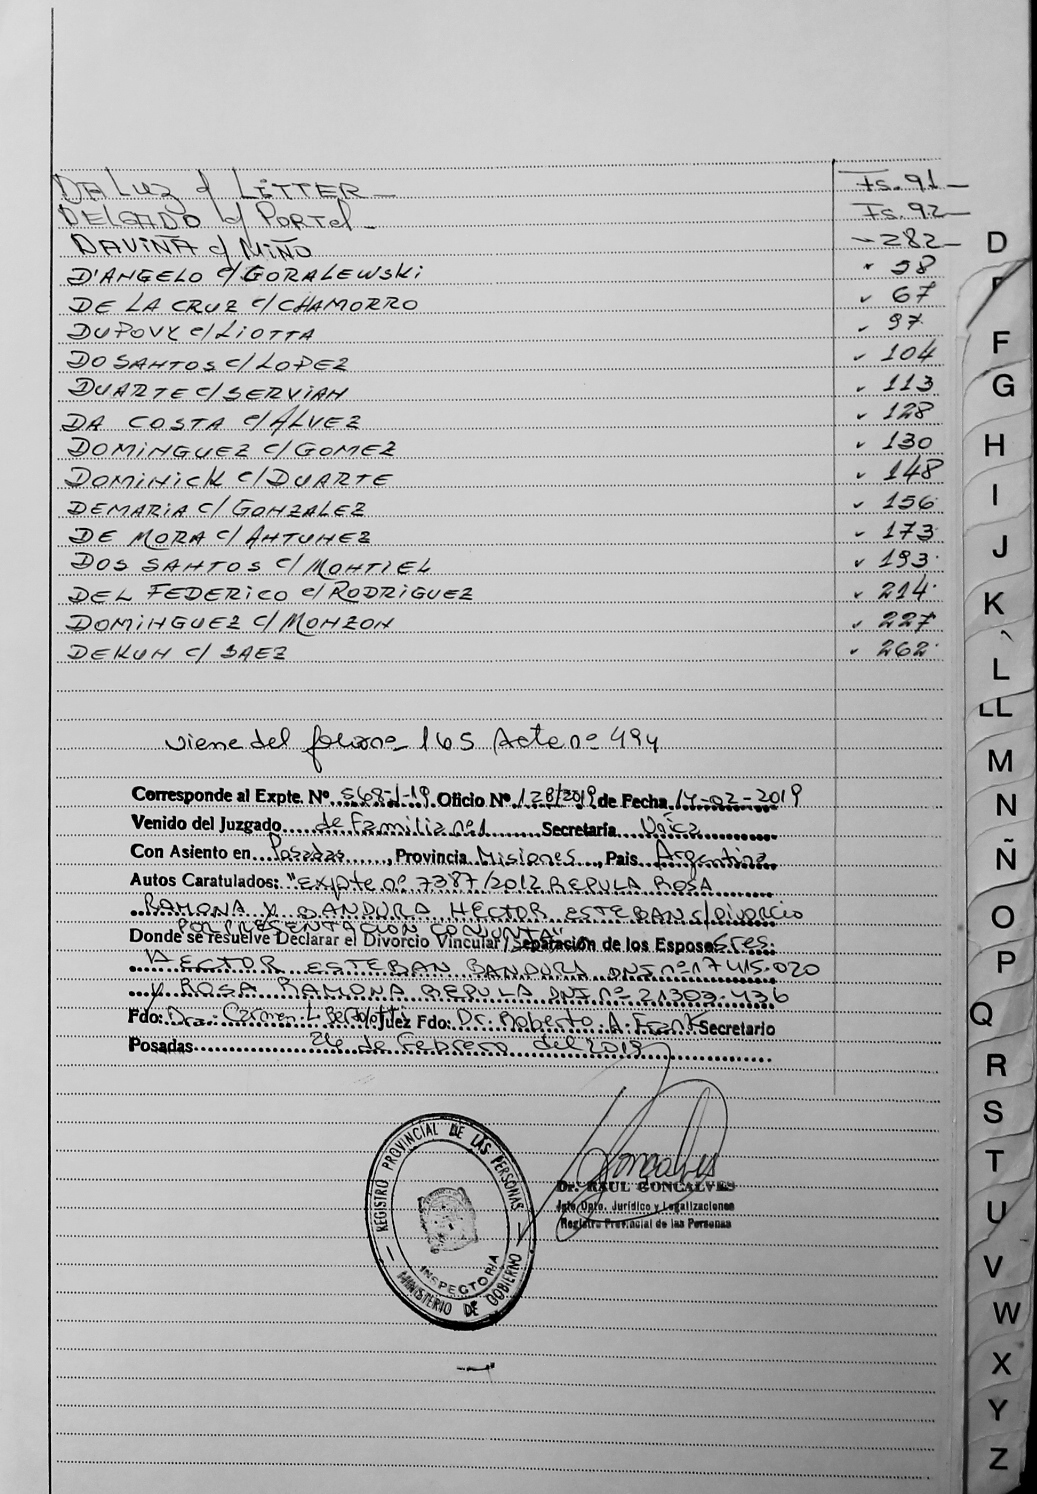 DA LUZ c/ LITTER Fs. 91
DELGADO c/ PORTEL Fs. 92
DAVIÑA c/ MIÑO 282
D'ANGELO c/ GORALEWSKI 58
DE LA CRUZ c/ CHAMORRO 67
DUPOVY c/ LIOTTA 97
DO SANTOS c/ LOPEZ 104
DUARTE c/ SERVIAN 113
DA COSTA c/ ALVEZ 128
DOMINGUEZ c/ GOMEZ 130
DOMINICK c/ DUARTE 148
DEMARIA c/ GONZALEZ 156
DE MORA c/ ANTUNEZ 173
DOS SANTOS c/ MONTIEL 193
DEL FEDERICO c/ RODRIGUEZ 214
DOMINGUEZ c/ MONZON 227
DEKUN c/ SAEZ 262
viene del folio nº 165 Acta nº 494
Corresponde al Expte. Nº 568-J-19 Oficio Nº 128/2019 de Fecha 14-02-2019
Venido del Juzgado de Familia nº 1 Secretaría Única
Con Asiento en Posadas, Provincia Misiones, Pais Argentina
Autos Caratulados: "Expte nº 7387/2012 REPULA ROSA
RAMONA Y BANDURA HECTOR ESTEBAN s/ Divorcio
POR PRESENTACION CONJUNTA"
Donde se resuelve Declarar el Divorcio Vincular / Separación de los Esposos Sres.
HECTOR ESTEBAN BANDURA DNI nº 17.415.020
Y ROSA RAMONA REPULA DNI nº 21.303.436
Fdo: Dra.: Carmen L Bertolotti Juez Fdo: Dr. Roberto A. Frank Secretario
Posadas 26 de Febrero del 2019
REGISTRO PROVINCIAL DE LAS PERSONAS
INSPECTORIA
MINISTERIO DE GOBIERNO
Goncalves
Dr. RAUL GONCALVES
Jefe Dpto. Jurídico y Legalizaciones
Registro Provincial de las Personas
D
F
G
H
I
J
K
L
LL
M
N
Ñ
O
P
Q
R
S
T
U
V
W
X
Y
Z